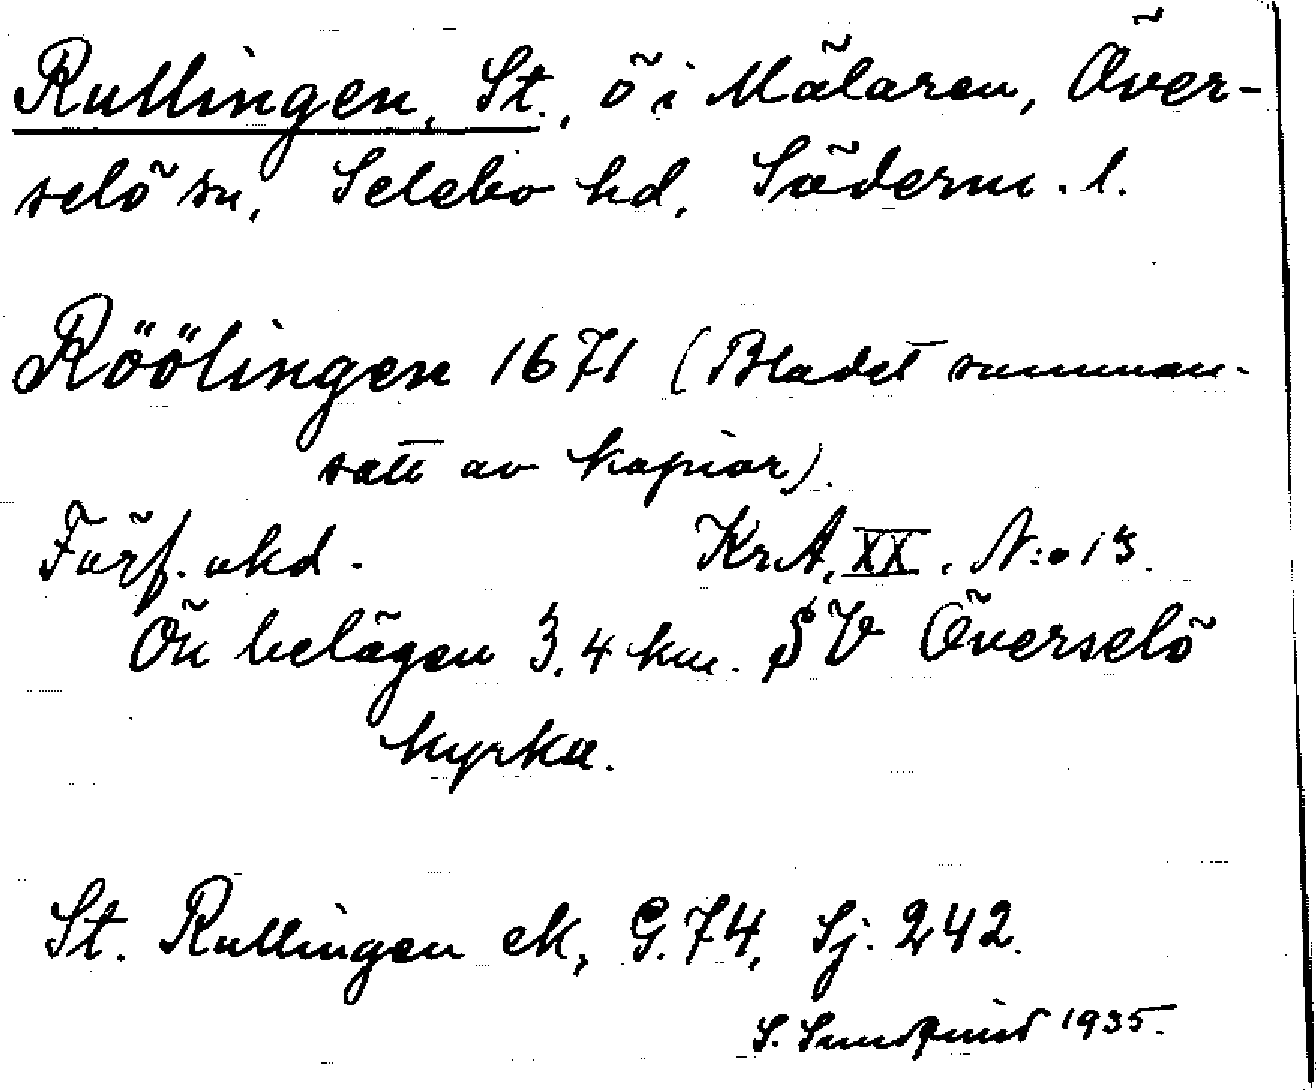 Rullingen, St., ö i Mälaren, Över-
selö sn, Selebo hd, Söderm. l.
Röölingen 1671 (Bladet samman-
satt av kopior).
Förf. okd. Kr.A. XX. N:o 13.
Ön belägen 3,4 km. SV Överselö
kyrka.
St. Rullingen ek, G. 74, Sj. 242.
S. Sundquist 1935.